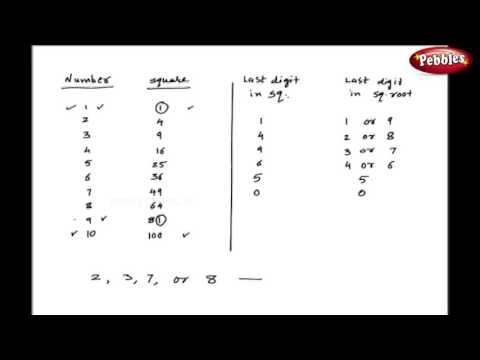 Pebbles
Number square Last digit in sq. Last digit in sq. root
✓ 1 ✓ 1 ✓ 1 1 or 9
2 4 4 2 or 8
3 9 9 3 or 7
4 16 6 4 or 6
5 25 5 5
6 36 0 0
7 49
8 64
9 ✓ 81
✓ 10 100 ✓
2, 3, 7, or 8 —